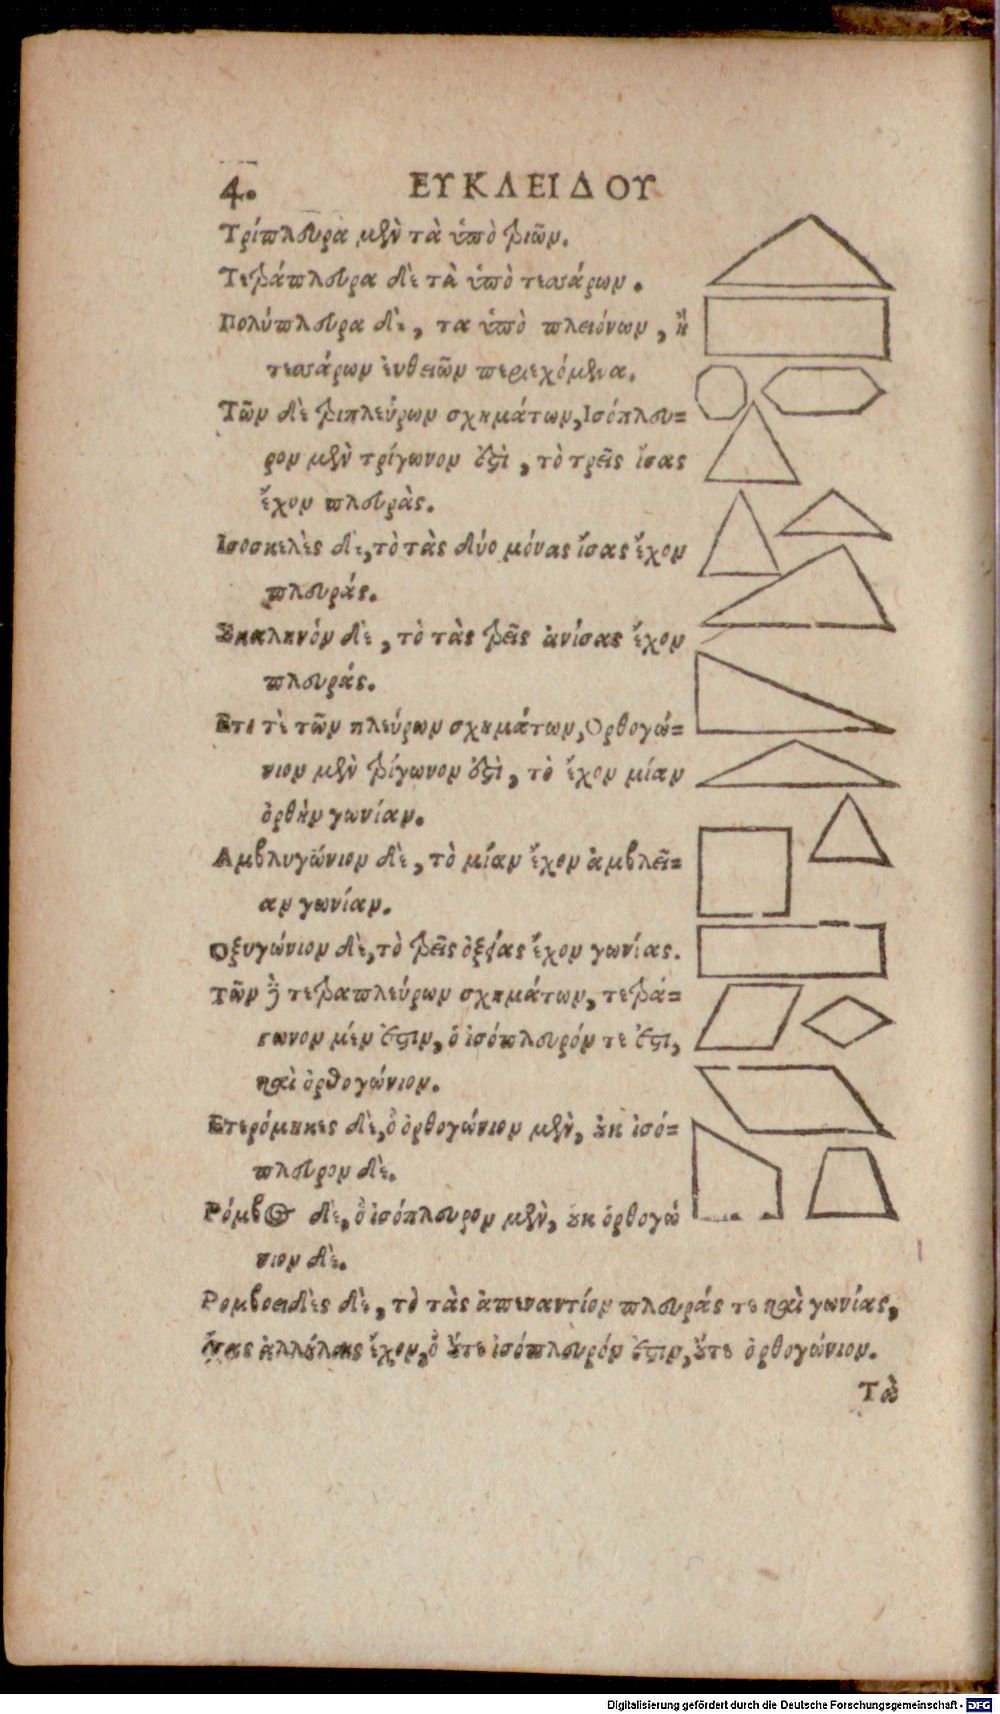 4.
ΕΥΚΛΕΙΔΟΥ
Τρίπλουρα μὲν τὰ ὑπὸ τριῶν.
Τετράπλουρα δὲ τὰ ὑπὸ τεσσάρων.
Πολύπλουρα δὲ, τα ὑπὸ πλειόνων, ἢ
τεσσάρων ἐυθειῶν περιεχόμενα.
Τῶν δὲ τριπλεύρων σχημάτων, Ισόπλου=
ρον μὲν τρίγωνον ὅξὶ, τὸ τρεῖς ἴσας
ἔχον πλουρὰς.
Ισοσκελὲς δὲ, τὸ τὰς δύο μόνας ἴσας ἔχον
πλουράς.
Σκαληνόν δὲ, τὸ τὰς τρεῖς ἀνίσας ἔχον
πλουράς.
Ετι τὲ τῶν πλεύρων σχημάτων, Ορθογώ=
νιον μὲν τρίγωνον ὅξὶ, τὸ ἔχον μίαν
ὀρθὴν γωνίαν.
Αμβλυγώνιον δὲ, τὸ μίαν ἔχον ἀμβλεῖ=
αν γωνίαν.
Οξυγώνιον δὲ, τὸ τρεῖς ὀξείας ἔχον γωνίας.
Τῶν δὲ τετραπλεύρων σχημάτων, τετρά=
γωνον μέν ἐστιν, ὁ ἰσόπλουρόν τε ἐστι,
καὶ ὀρθογώνιον.
Ετερόμηκες δὲ, ὁ ὀρθογώνιον μὲν, ȣκ ἰσό=
πλουρον δὲ.
Ρόμβος δὲ, ὁ ἰσόπλουρον μὲν, ȣκ ὀρθογώ
νιον δὲ.
Ρομβοειδὲς δὲ, τὸ τὰς ἀπεναντίον πλουράς τε καὶ γωνίας,
ἴσας ἀλλήλαις ἔχον, ὁ ȣ̓́τε ἰσόπλουρόν ἐστιν, ȣ̓́τε ὀρθογώνιον.
Τὼ
Digitalisierung gefördert durch die Deutsche Forschungsgemeinschaft - DFG